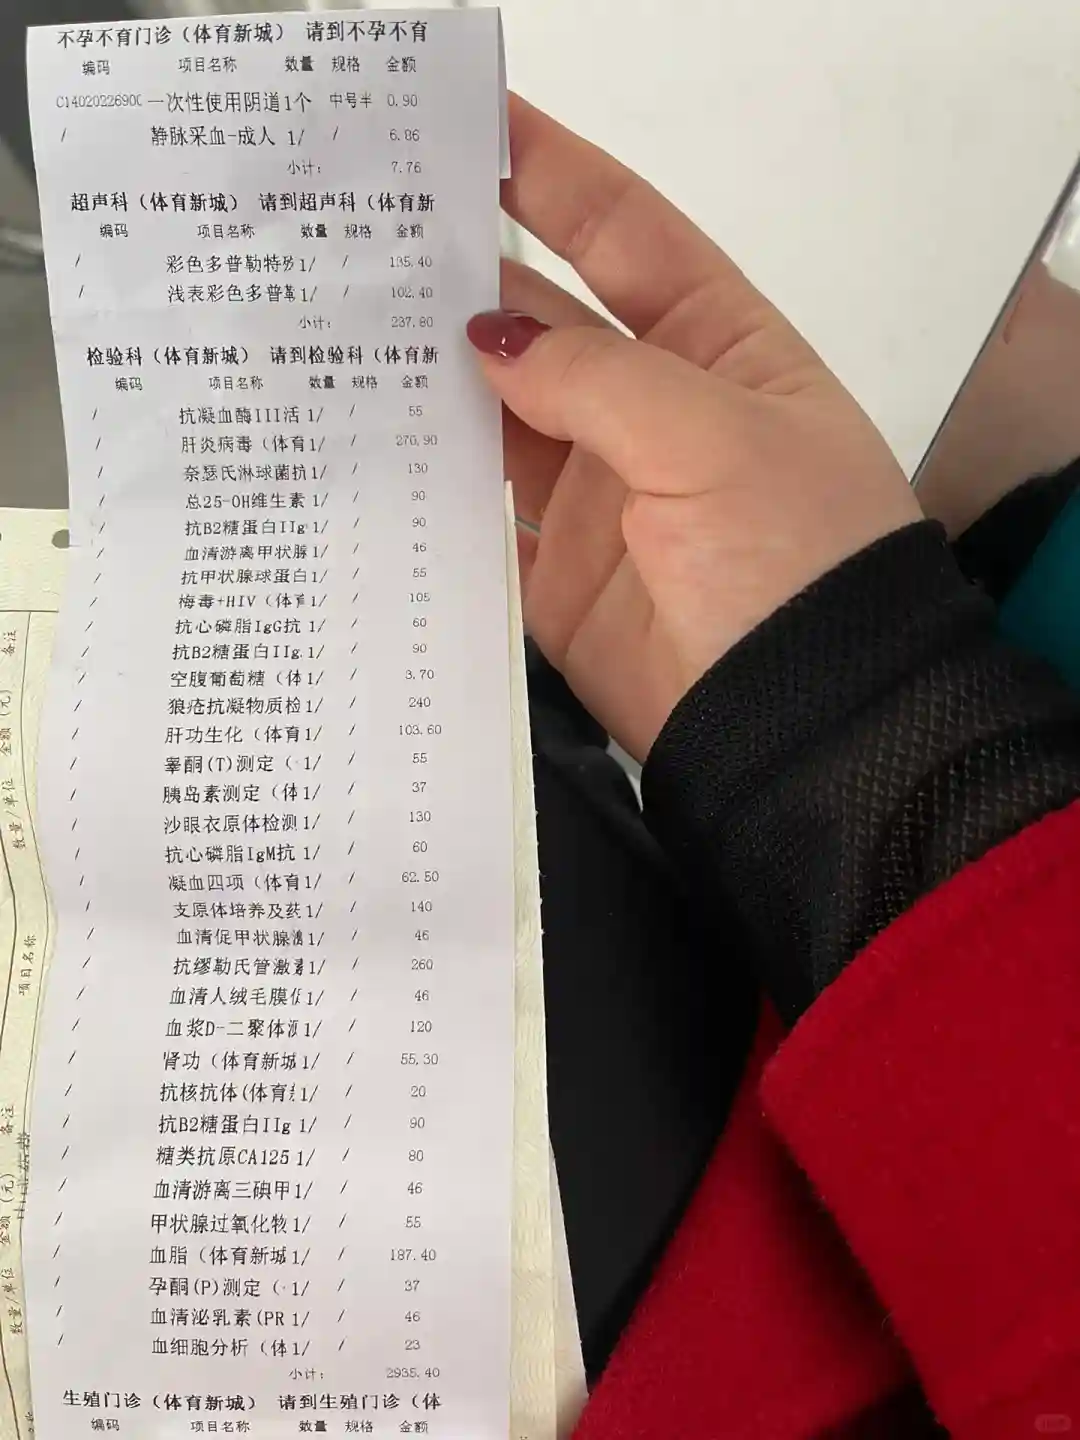 不孕不育门诊（体育新城） 请到不孕不育
编码 项目名称 数量 规格 金额
C1402022690C 一次性使用阴道 1个 中号半 0.90
/ 静脉采血-成人 1/ / 6.86
小计： 7.76
超声科（体育新城） 请到超声科（体育新
编码 项目名称 数量 规格 金额
/ 彩色多普勒特殊 1/ / 135.40
/ 浅表彩色多普勒 1/ / 102.40
小计： 237.80
检验科（体育新城） 请到检验科（体育新
编码 项目名称 数量 规格 金额
/ 抗凝血酶III活 1/ / 55
/ 肝炎病毒（体育 1/ / 270.90
/ 奈瑟氏淋球菌抗 1/ / 130
/ 总25-OH维生素 1/ / 90
/ 抗B2糖蛋白IIg 1/ / 90
/ 血清游离甲状腺 1/ / 46
/ 抗甲状腺球蛋白 1/ / 55
/ 梅毒+HIV（体育 1/ / 105
/ 抗心磷脂IgG抗 1/ / 60
/ 抗B2糖蛋白IIg 1/ / 90
/ 空腹葡萄糖（体 1/ / 3.70
/ 狼疮抗凝物质检 1/ / 240
/ 肝功生化（体育 1/ / 103.60
/ 睾酮(T)测定（ 1/ / 55
/ 胰岛素测定（体 1/ / 37
/ 沙眼衣原体检测 1/ / 130
/ 抗心磷脂IgM抗 1/ / 60
/ 凝血四项（体育 1/ / 62.50
/ 支原体培养及药 1/ / 140
/ 血清促甲状腺激 1/ / 46
/ 抗缪勒氏管激素 1/ / 260
/ 血清人绒毛膜促 1/ / 46
/ 血浆D-二聚体测 1/ / 120
/ 肾功（体育新城 1/ / 55.30
/ 抗核抗体(体育新 1/ / 20
/ 抗B2糖蛋白IIg 1/ / 90
/ 糖类抗原CA125 1/ / 80
/ 血清游离三碘甲 1/ / 46
/ 甲状腺过氧化物 1/ / 55
/ 血脂（体育新城 1/ / 187.40
/ 孕酮(P)测定（ 1/ / 37
/ 血清泌乳素(PR 1/ / 46
/ 血细胞分析（体 1/ / 23
小计： 2935.40
生殖门诊（体育新城） 请到生殖门诊（体
编码 项目名称 数量 规格 金额
备注
金额（元）
数量/单位
项目名称
备注
金额（元）
数量/单位